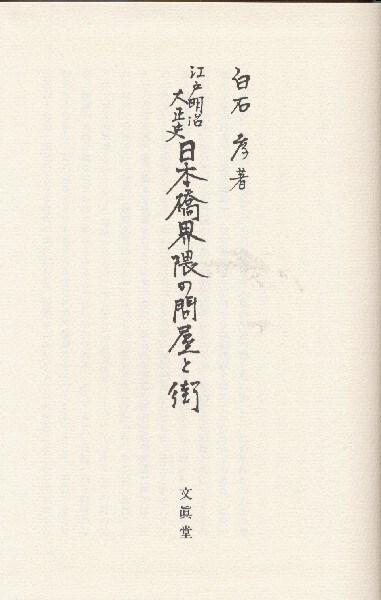 白石 孝著
江戸明治
大正史
日本橋界隈の問屋と街
文眞堂